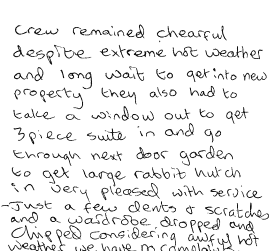 Crew remained chearful
despite extreme hot weather
and long wait to get into new
property they also had to
take a window out to get
3 piece suite in and go
through next door garden
to get large rabbit hutch
in very pleased with service
- Just a few dents & scratches
and a wardrobe dropped and
chipped considering awful hot
weather we have no complaints